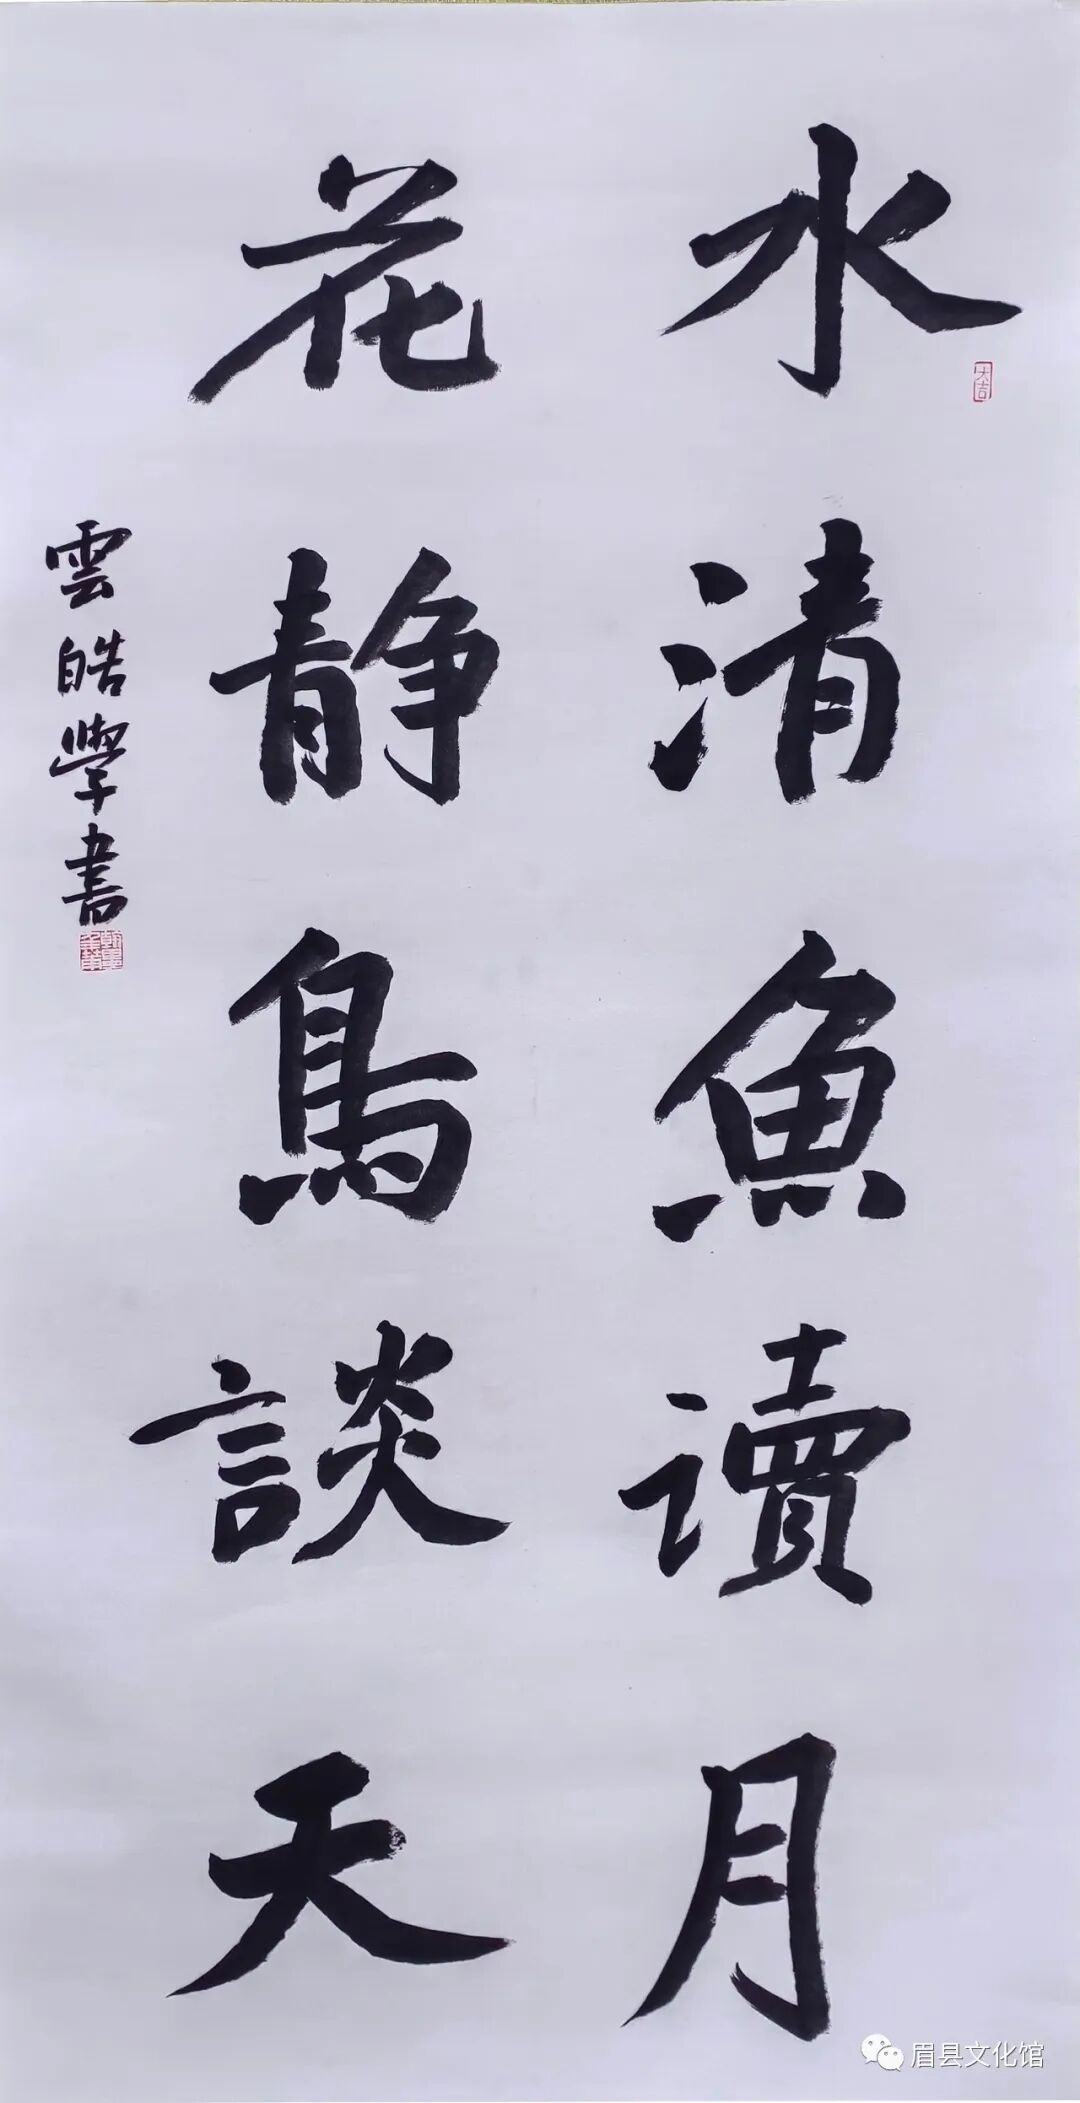 水清魚讀月
花静鳥談天
雲皓學書
大吉
眉县文化馆